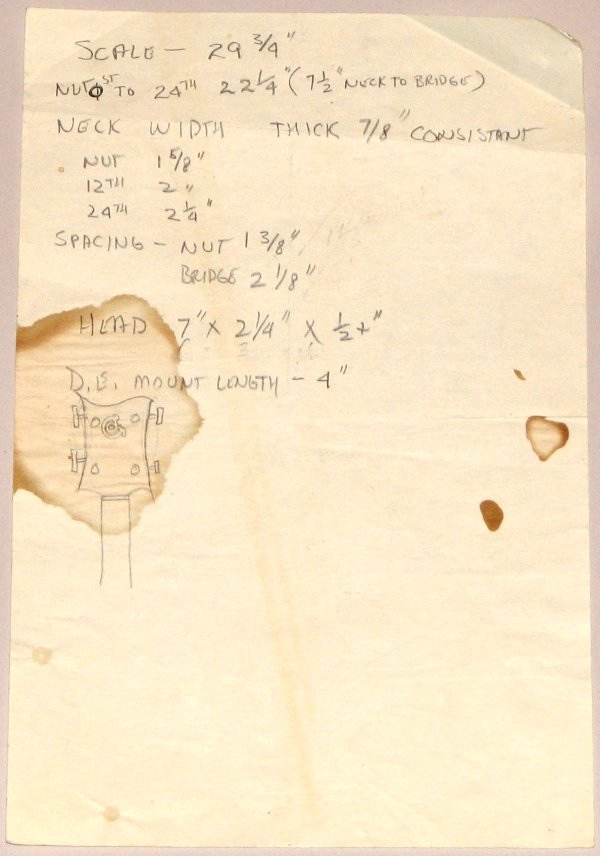 SCALE - 29 3/4"
NUT TO 24TH 22 1/4" (7 1/2" NECK TO BRIDGE)
NECK WIDTH THICK 7/8" CONSISTANT
NUT 1 5/8"
12TH 2"
24TH 2 1/4"
SPACING - NUT 1 3/8"
BRIDGE 2 1/8"
HEAD 7" X 2 1/4" X 1/2 +"
D.E. MOUNT LENGTH - 4"